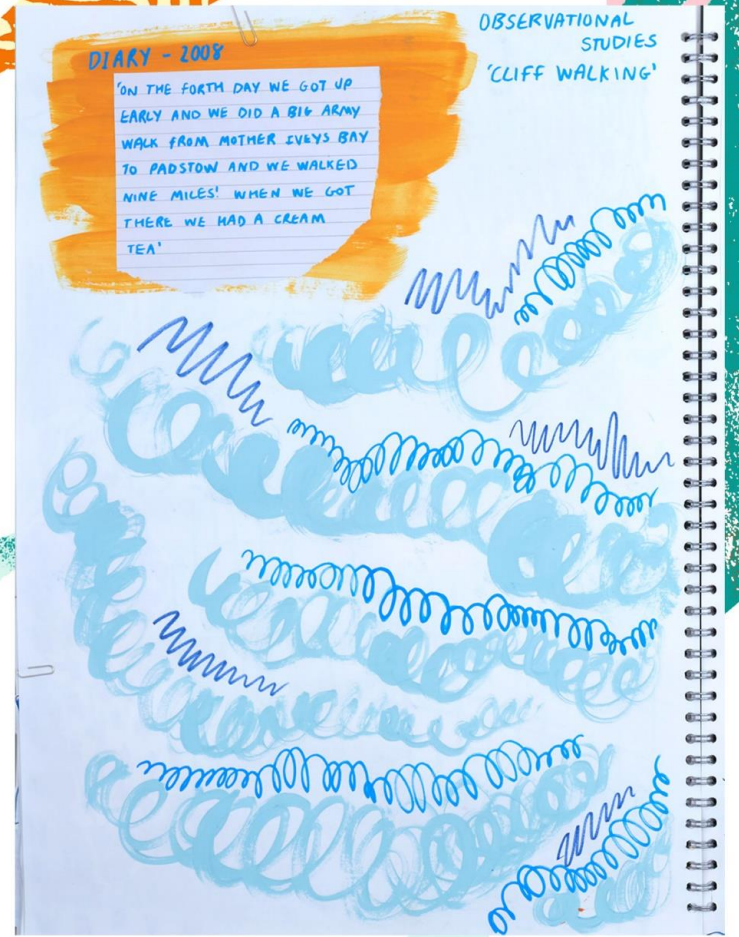 DIARY - 2008
'ON THE FORTH DAY WE GOT UP
EARLY AND WE DID A BIG ARMY
WALK FROM MOTHER IVEYS BAY
TO PADSTOW AND WE WALKED
NINE MILES! WHEN WE GOT
THERE WE HAD A CREAM
TEA'
OBSERVATIONAL
STUDIES
'CLIFF WALKING'